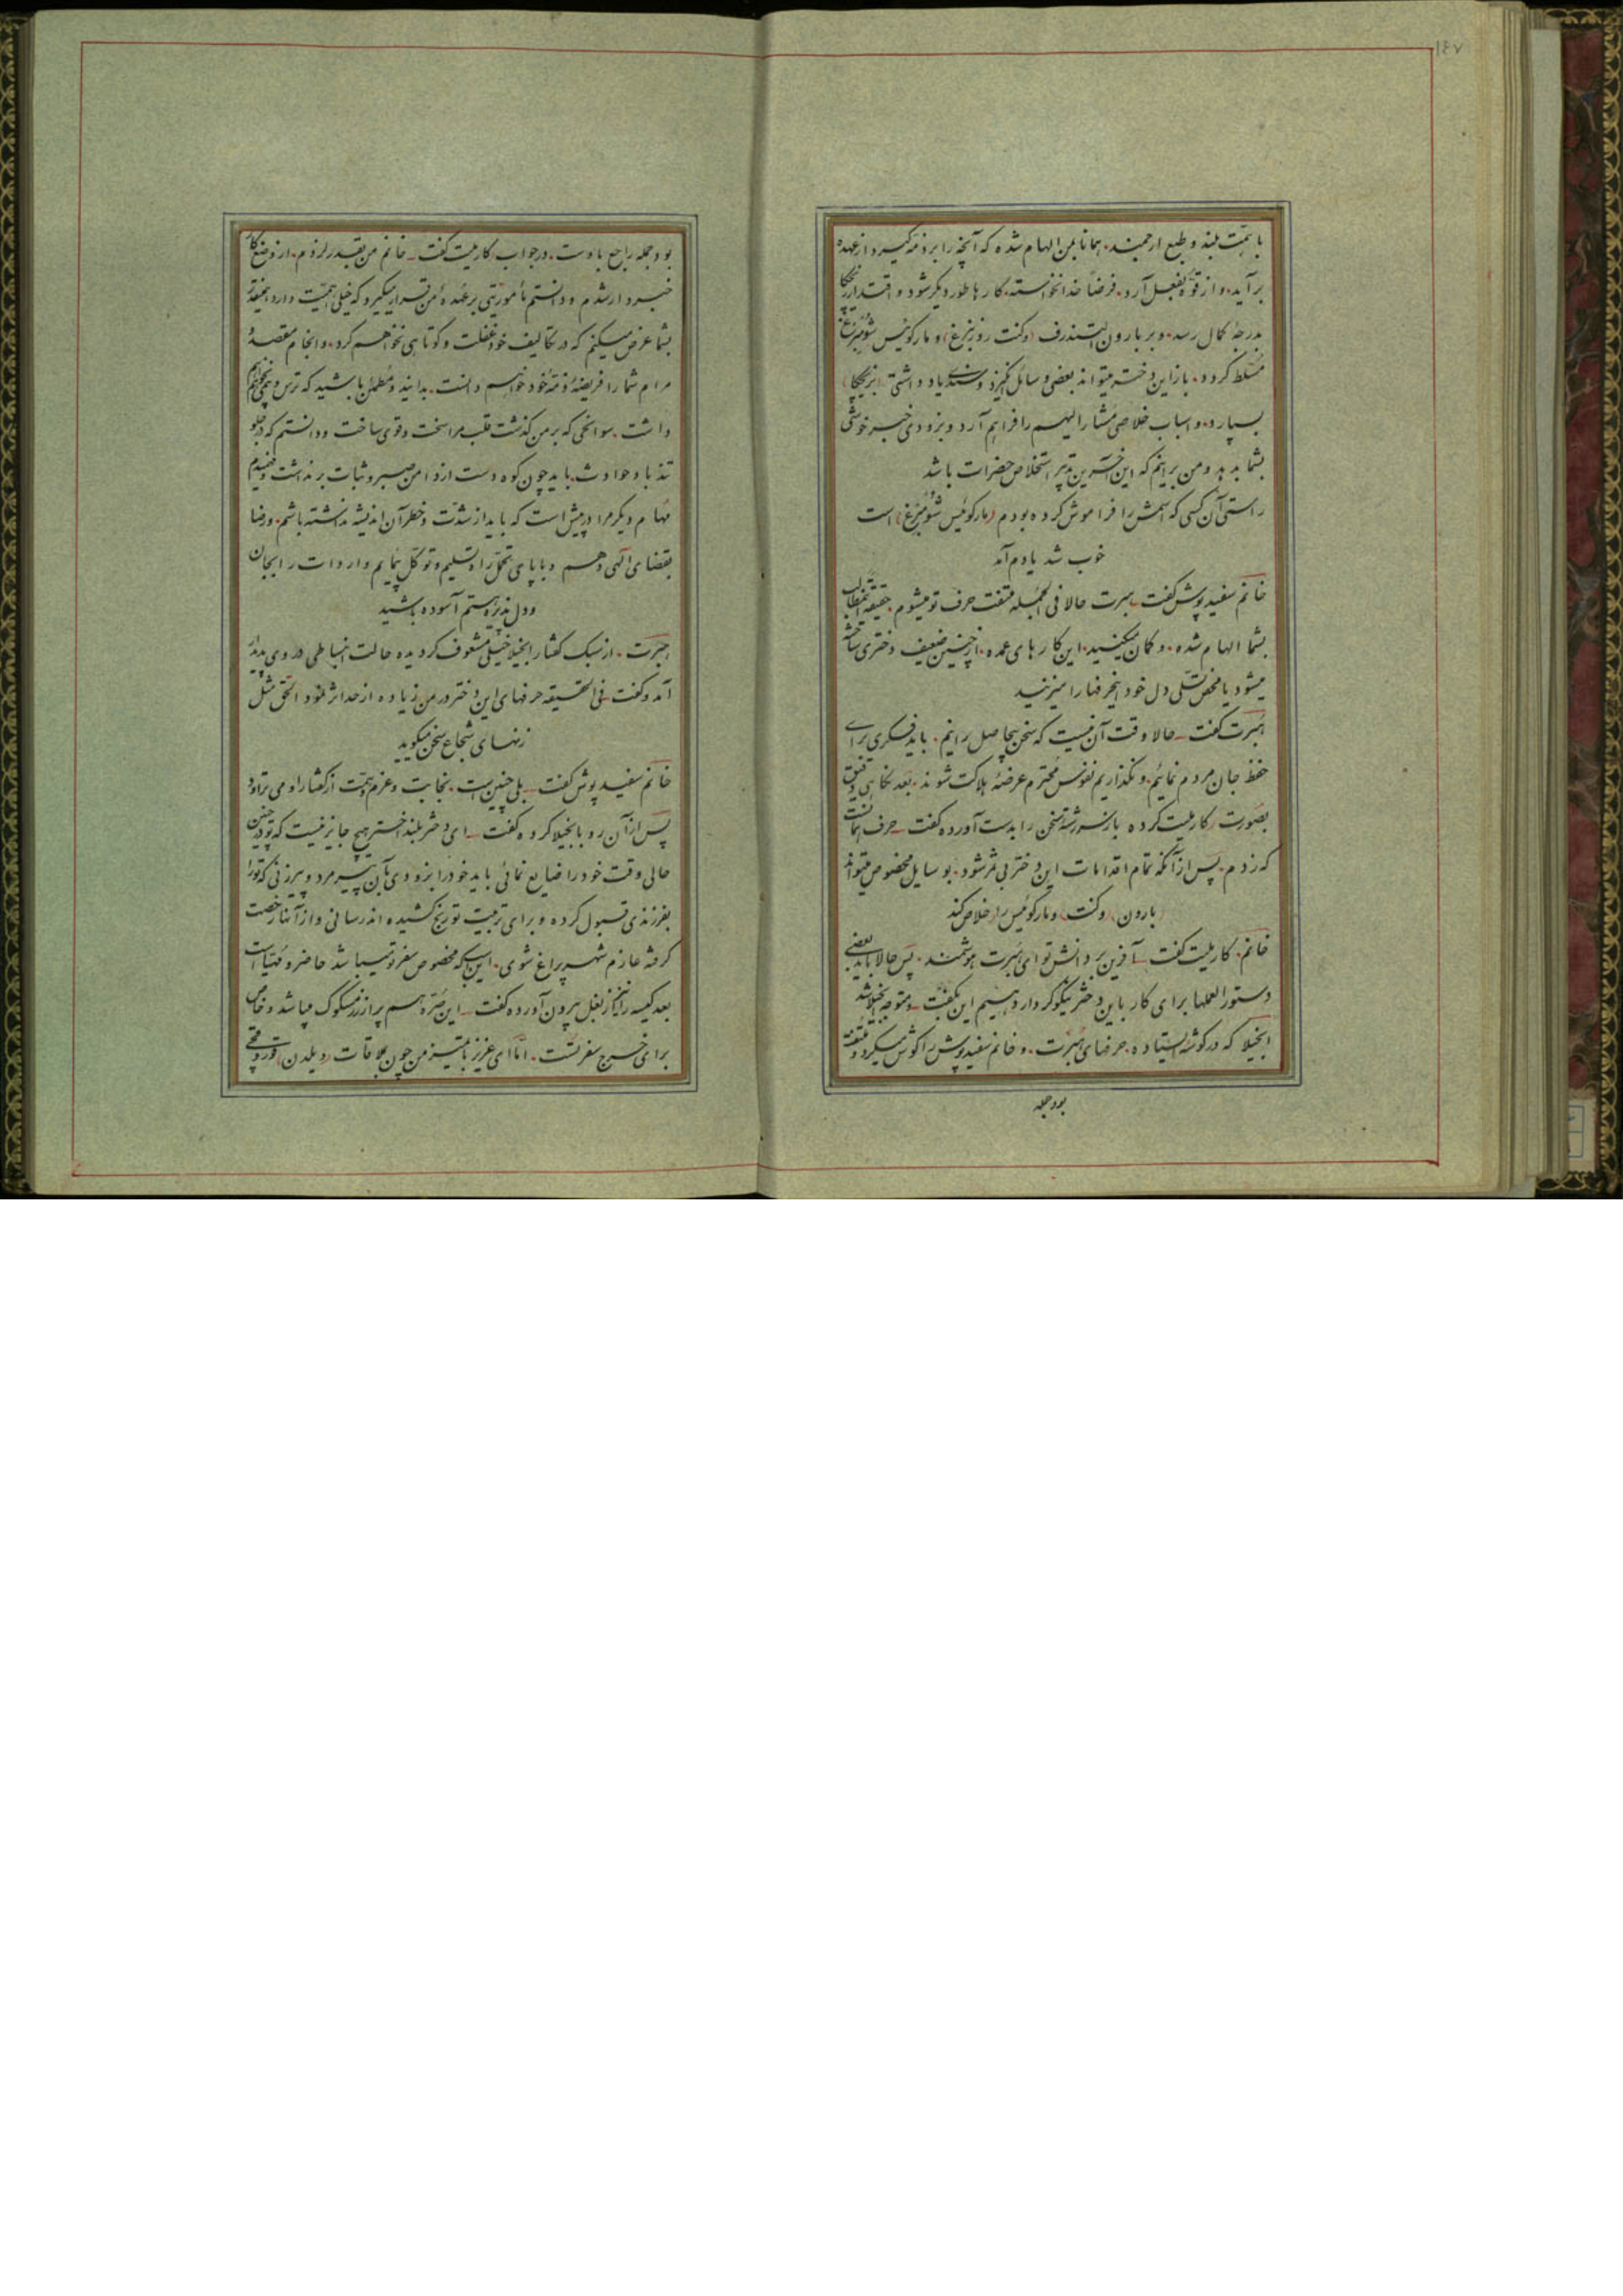 ۱۴۷
با همت بلند و طبع ارجمند، همانا بمن الهام شده که آنچه را بر ذمه گیرد از عهده
برآید، و از قوه بفعل آرد، فرضاً خدانخواسته کارها طور دیگر شود و اقتدار بریجکا
بدرجه کمال رسد، و بر بارون الشندرف (وکنت روزنبرغ) و مارکوئیس شومبرغ
مسلط گردد، باز این دختر میتواند بعضی وسائل انگیزد و سندی یادداشتی (بریجکا)
بسپارد، و اسباب خلاصی مشارالیهم را فراهم آرد و بزودی خبر خوشی
بشما بدهد و من برانم که این آخرین تدبیر استخلاص حضرات باشد
راستی آن کسی که اسمش را فراموش کرده بودم (مارکوئیس شومبرغ) است
خوب شد یادم آمد
خانم سفیدپوش گفت ـ هبرت حالا فی الجمله ملتفت حرف تو میشوم، حقیقة این مطالب
بشما الهام شده، و گمان میکنید، این کارهای عمده، از چنین ضعیف دختری ساخته
میشود یا محض تسلی دل خود این حرفها را میزنید
هبرت گفت ـ حالا وقت آن نیست که سخن بیحاصل رانیم، باید فکری برای
حفظ جان مردم نمائیم، و نگذاریم نفوس محترم عرضه هلاکت شوند، بعد نگاهی دقیق
بصورت کارملیت کرده باز سررشته سخن را بدست آورده گفت ـ حرف همانست
که زدم، پس از آنکه تمام اقدامات این دختر بی ثمر شود، بوسایل مخصوص میتواند
(بارون) (وکنت) و مارکوئیس را خلاص کند
خانم، کارملیت گفت ـ آفرین بر دانش تو ای هبرت هوشمند، پس حالا باید بعضی
دستورالعملها برای کار باین دختر نیکوکردار دهیم این بگفت ـ و متوجه انجیلا شد
انجیلا که در گوشه ایستاده، حرفهای هبرت، و خانم سفیدپوش را گوش میکرد و ملتفت
بود جمله
بود جمله راجع باوست، در جواب کارملیت گفت ـ خانم من بقدر لزوم، از وضع کار
خبردار شدم و دانستم مأموریتی بر عهده من قرار میگیرد که خیلی اهمیت دارد، اینقدر
بشما عرض میکنم که در تکالیف خود غفلت و کوتاهی نخواهم کرد، و انجام مقصد و
مرام شما را فریضه ذمه خود خواهم دانست، بدانید و مطمئن باشید که ترس و بیمی نخواهم
داشت، سوانحی که بر من گذشت قلب مرا سخت و قوی ساخت و دانستم که در جلو
تندباد حوادث، باید چون کوه دست از دامن صبر و ثبات برنداشت و فهمیدم
مهام دیگر مرا در پیش است که باید از شدت و خطر آن اندیشه نداشته باشم، و رضا
بقضای الهی دهم و با پای تحمل راه تسلیم و توکل پیمایم واردات را بجان
و دل پذیره هستم آسوده باشید
هبرت، از سبک گفتار انجیلا خیلی مشعوف گردیده حالت انبساطی در وی پدیدار
آمد و گفت فی الحقیقه حرفهای این دختر در من زیاده از حد اثر نمود الحق مثل
زنهای شجاع سخن میگوید
خانم سفیدپوش گفت ـ بلی چنین است، نجابت و عزم و همت از گفتار او می تراود
پس از آن رو بانجیلا کرده گفت ـ ای دختر بلند اختر هیچ جایز نیست که تو در چنین
حالی وقت خود را ضایع نمائی باید خود را بزودی بآن پیرمرد و پیرزنی که ترا
بفرزندی قبول کرده و برای تربیت تو رنج کشیده اند رسانی و از آنها رخصت
گرفته عازم شهر پراغ شوی، این اسبی که مخصوص سفر تو میباشد حاضر و مهیاست
بعد کیسه را نیز از بغل بیرون آورده گفت ـ این صره هم پر از زر مسکوک میباشد و خاص
برای خرج سفر تست، اما ای عزیز با تمیز من چون بملاقات (ویلدن)